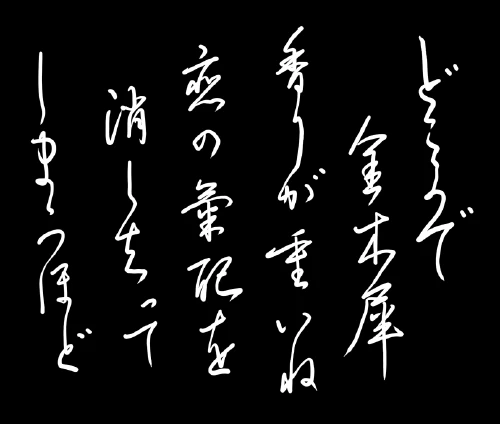 どこかで
金木犀
香りが重いね
恋の氣配を
消し去って
しまうほど